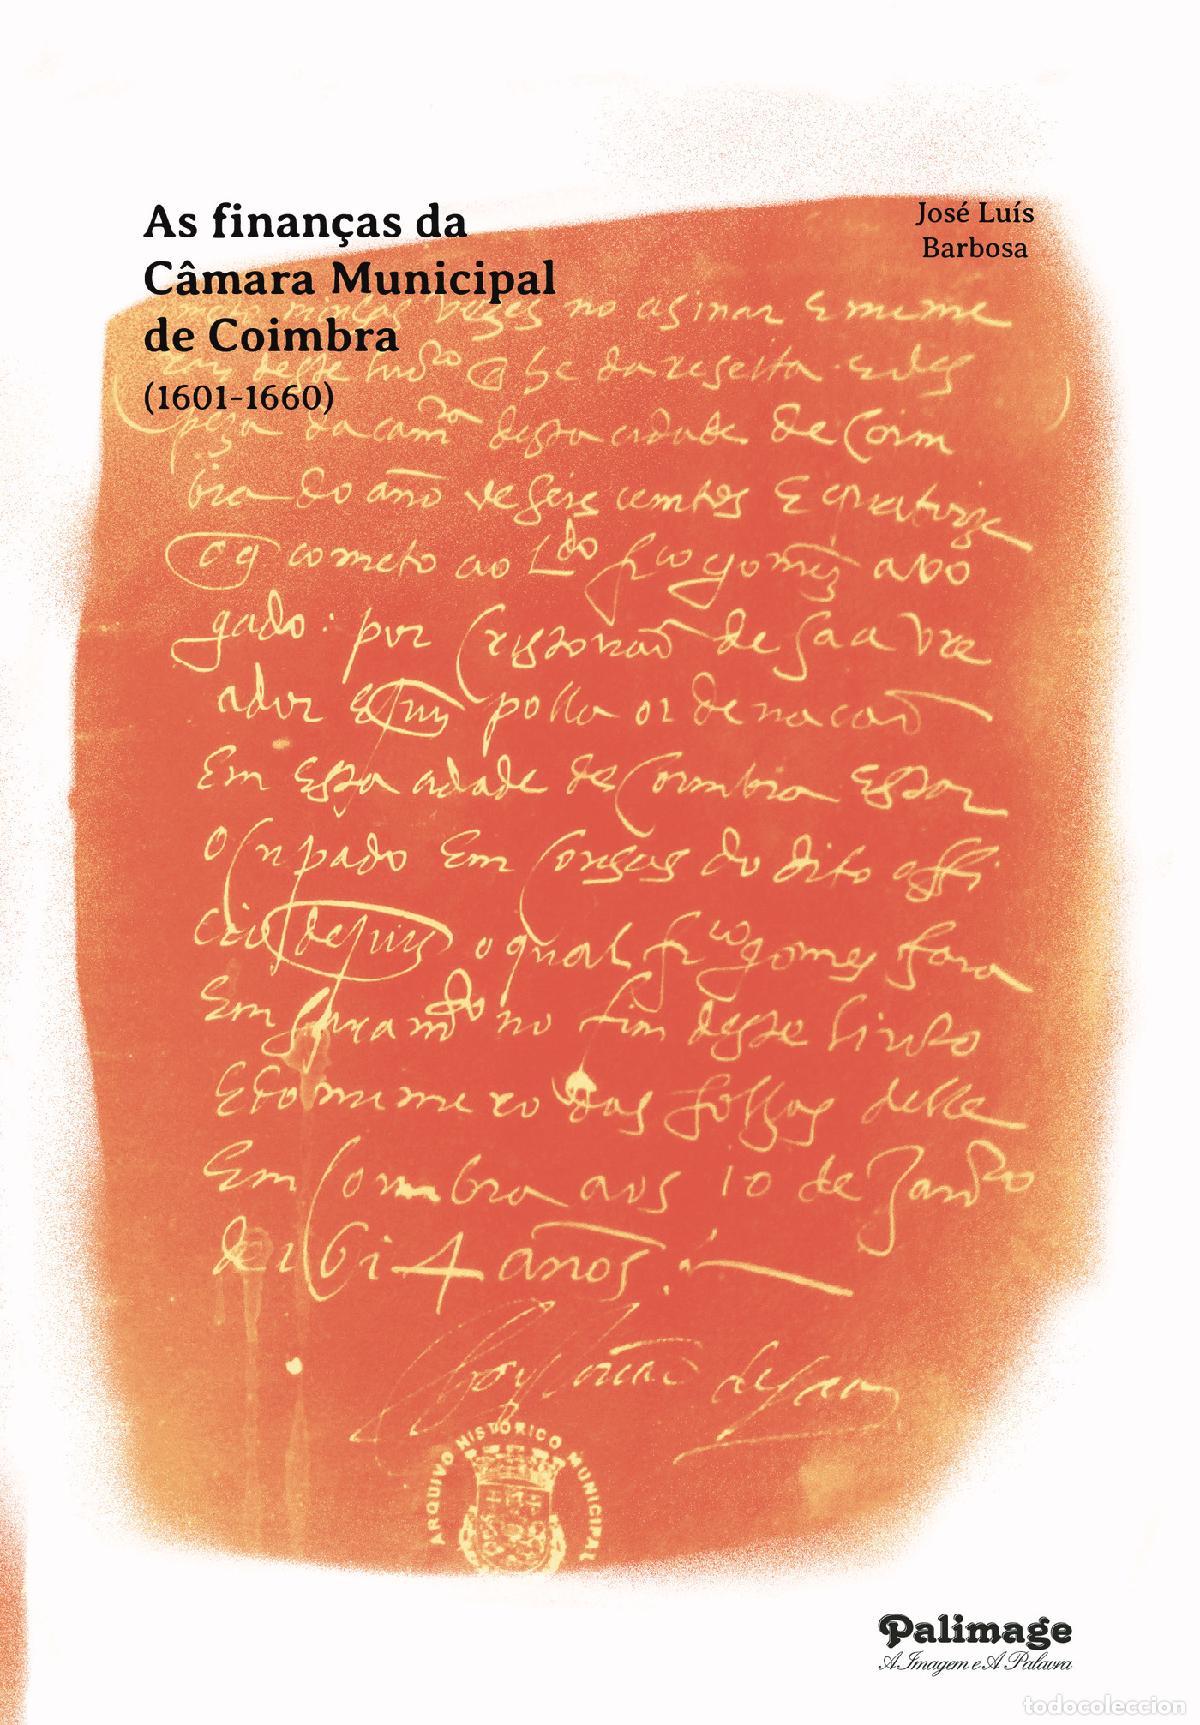 As finanças da
Câmara Municipal
de Coimbra
(1601-1660)
José Luís
Barbosa
vezes no asinar E meme
deste da reseita e des
peza da camra desta cidade de Coim
bra do ano de seis centos E quatorze
cometo ao Ldo frco gomez avo
gado: por de saa vre
ador polla ordenacaõ
Em essa cidade de Coimbra Estar
ocupado Em cousas do dito offi
cio o qual frco gomes fara
Em no fim deste livro
E do numero das folhas delle
Em Coimbra aos 10 de Janro
de 1614 anos
de saa
ARQUIVO HISTÓRICO MUNICIPAL
Palimage
A Imagem e A Palavra
todocoleccion